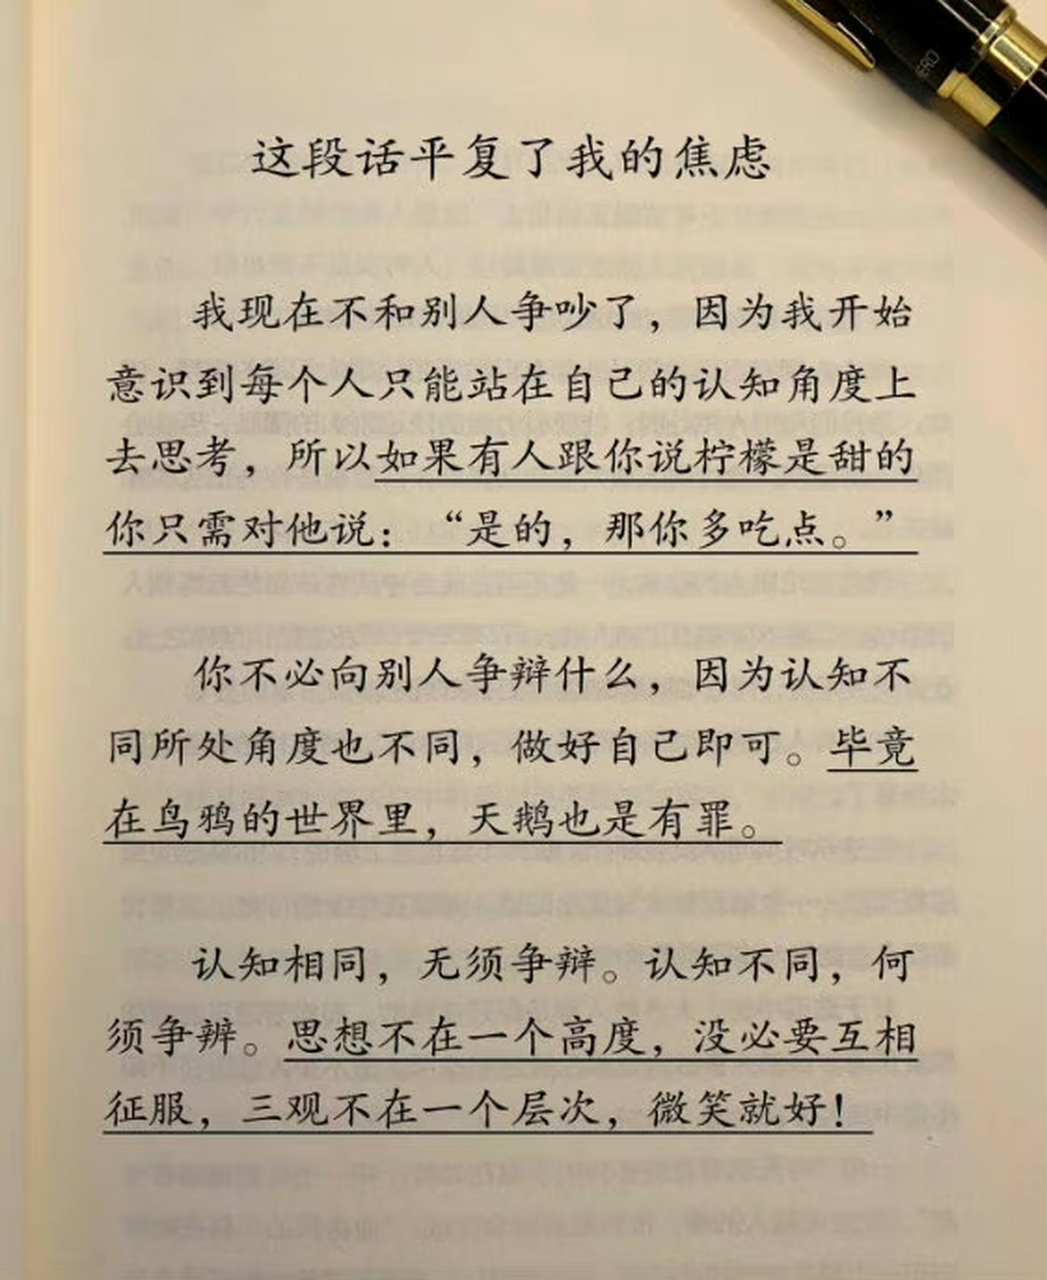 这段话平复了我的焦虑
我现在不和别人争吵了，因为我开始
意识到每个人只能站在自己的认知角度上
去思考，所以如果有人跟你说柠檬是甜的
你只需对他说：“是的，那你多吃点。”
你不必向别人争辩什么，因为认知不
同所处角度也不同，做好自己即可。毕竟
在乌鸦的世界里，天鹅也是有罪。
认知相同，无须争辩。认知不同，何
须争辨。思想不在一个高度，没必要互相
征服，三观不在一个层次，微笑就好！